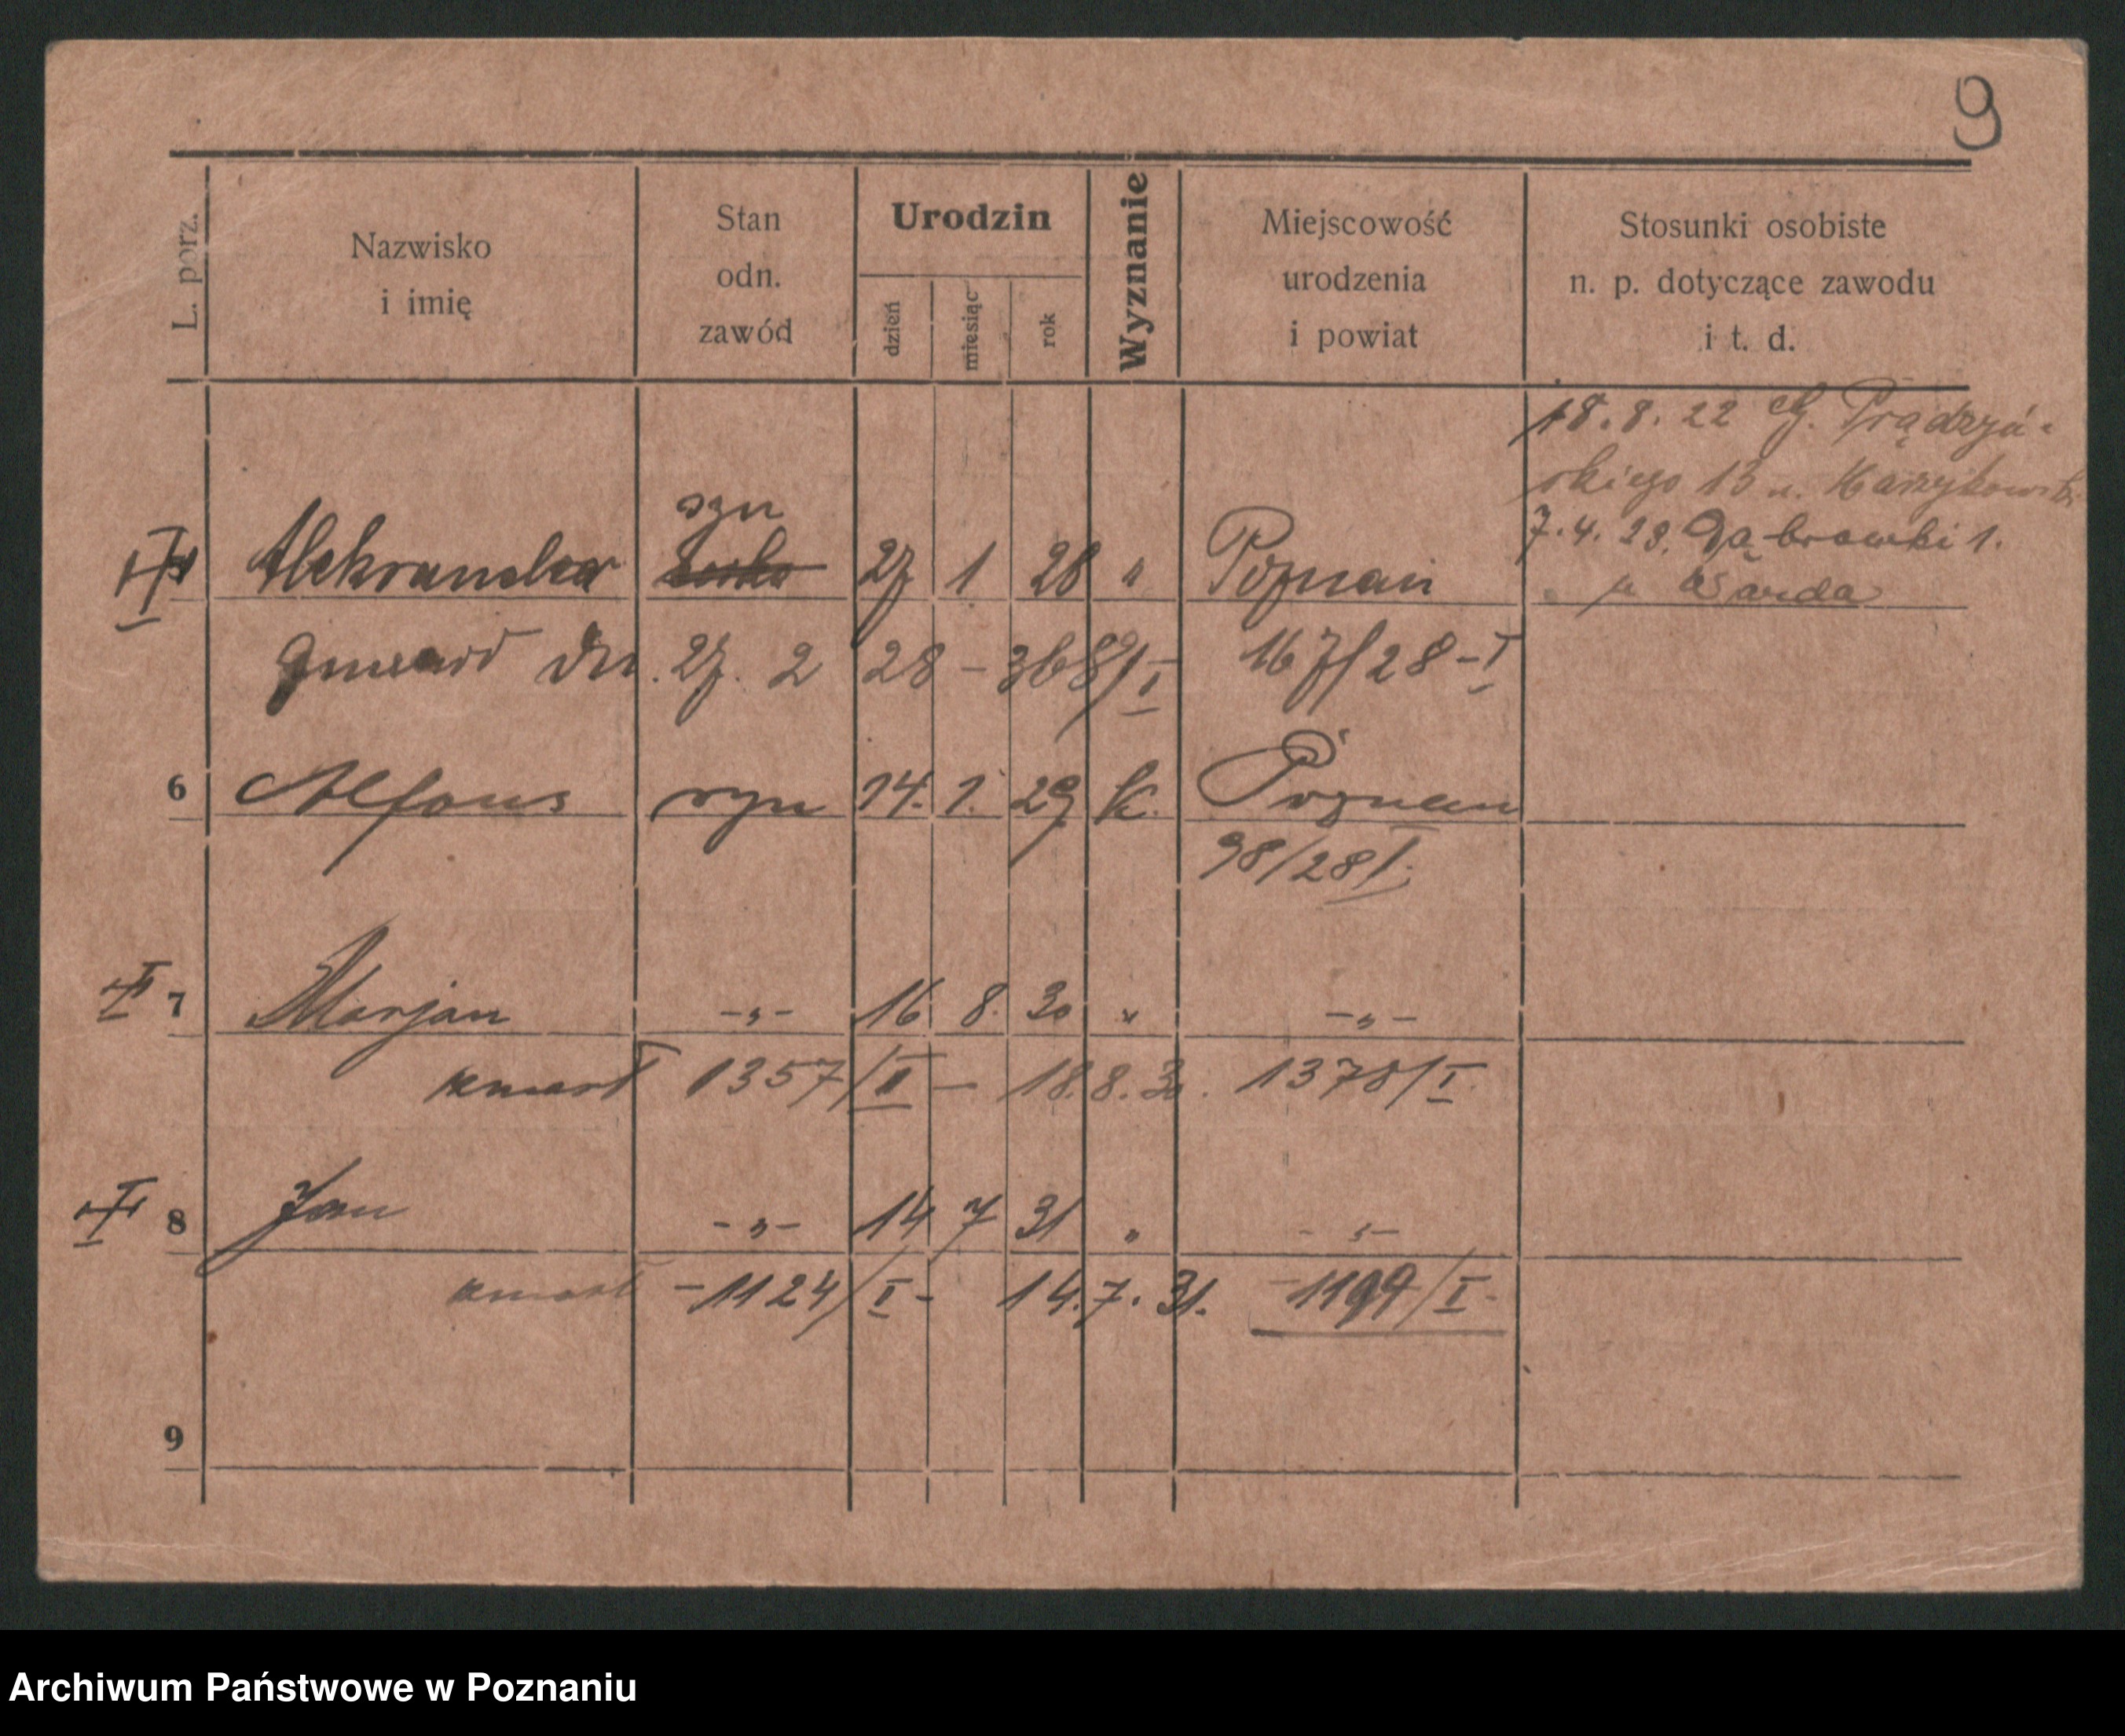 9
L. porz.
Nazwisko
i imię
Stan
odn.
zawód
Urodzin
dzień
miesiąc
rok
Wyznanie
Miejscowość
urodzenia
i powiat
Stosunki osobiste
n. p. dotyczące zawodu
i t. d.
18. 8. 22 Prądzyń-
skiego 13 u.
7. 4. 23. Dąbrowki 1.
syn
27 1 28 " Poznań
dn. 27. 2 28 - 368/I 167/28 - I
6 Alfons syn 14. 1. 29 k. Poznań
98/28 I.
7 Marjan -„- 16 8. 30 „ -„-
zmarł 1357/II - 18. 8. 30. 1378/I.
8 Jan -„- 14 7 31 „ -„-
zmarł - 1124/I - 14. 7. 31. - 1199/I -
9
Archiwum Państwowe w Poznaniu